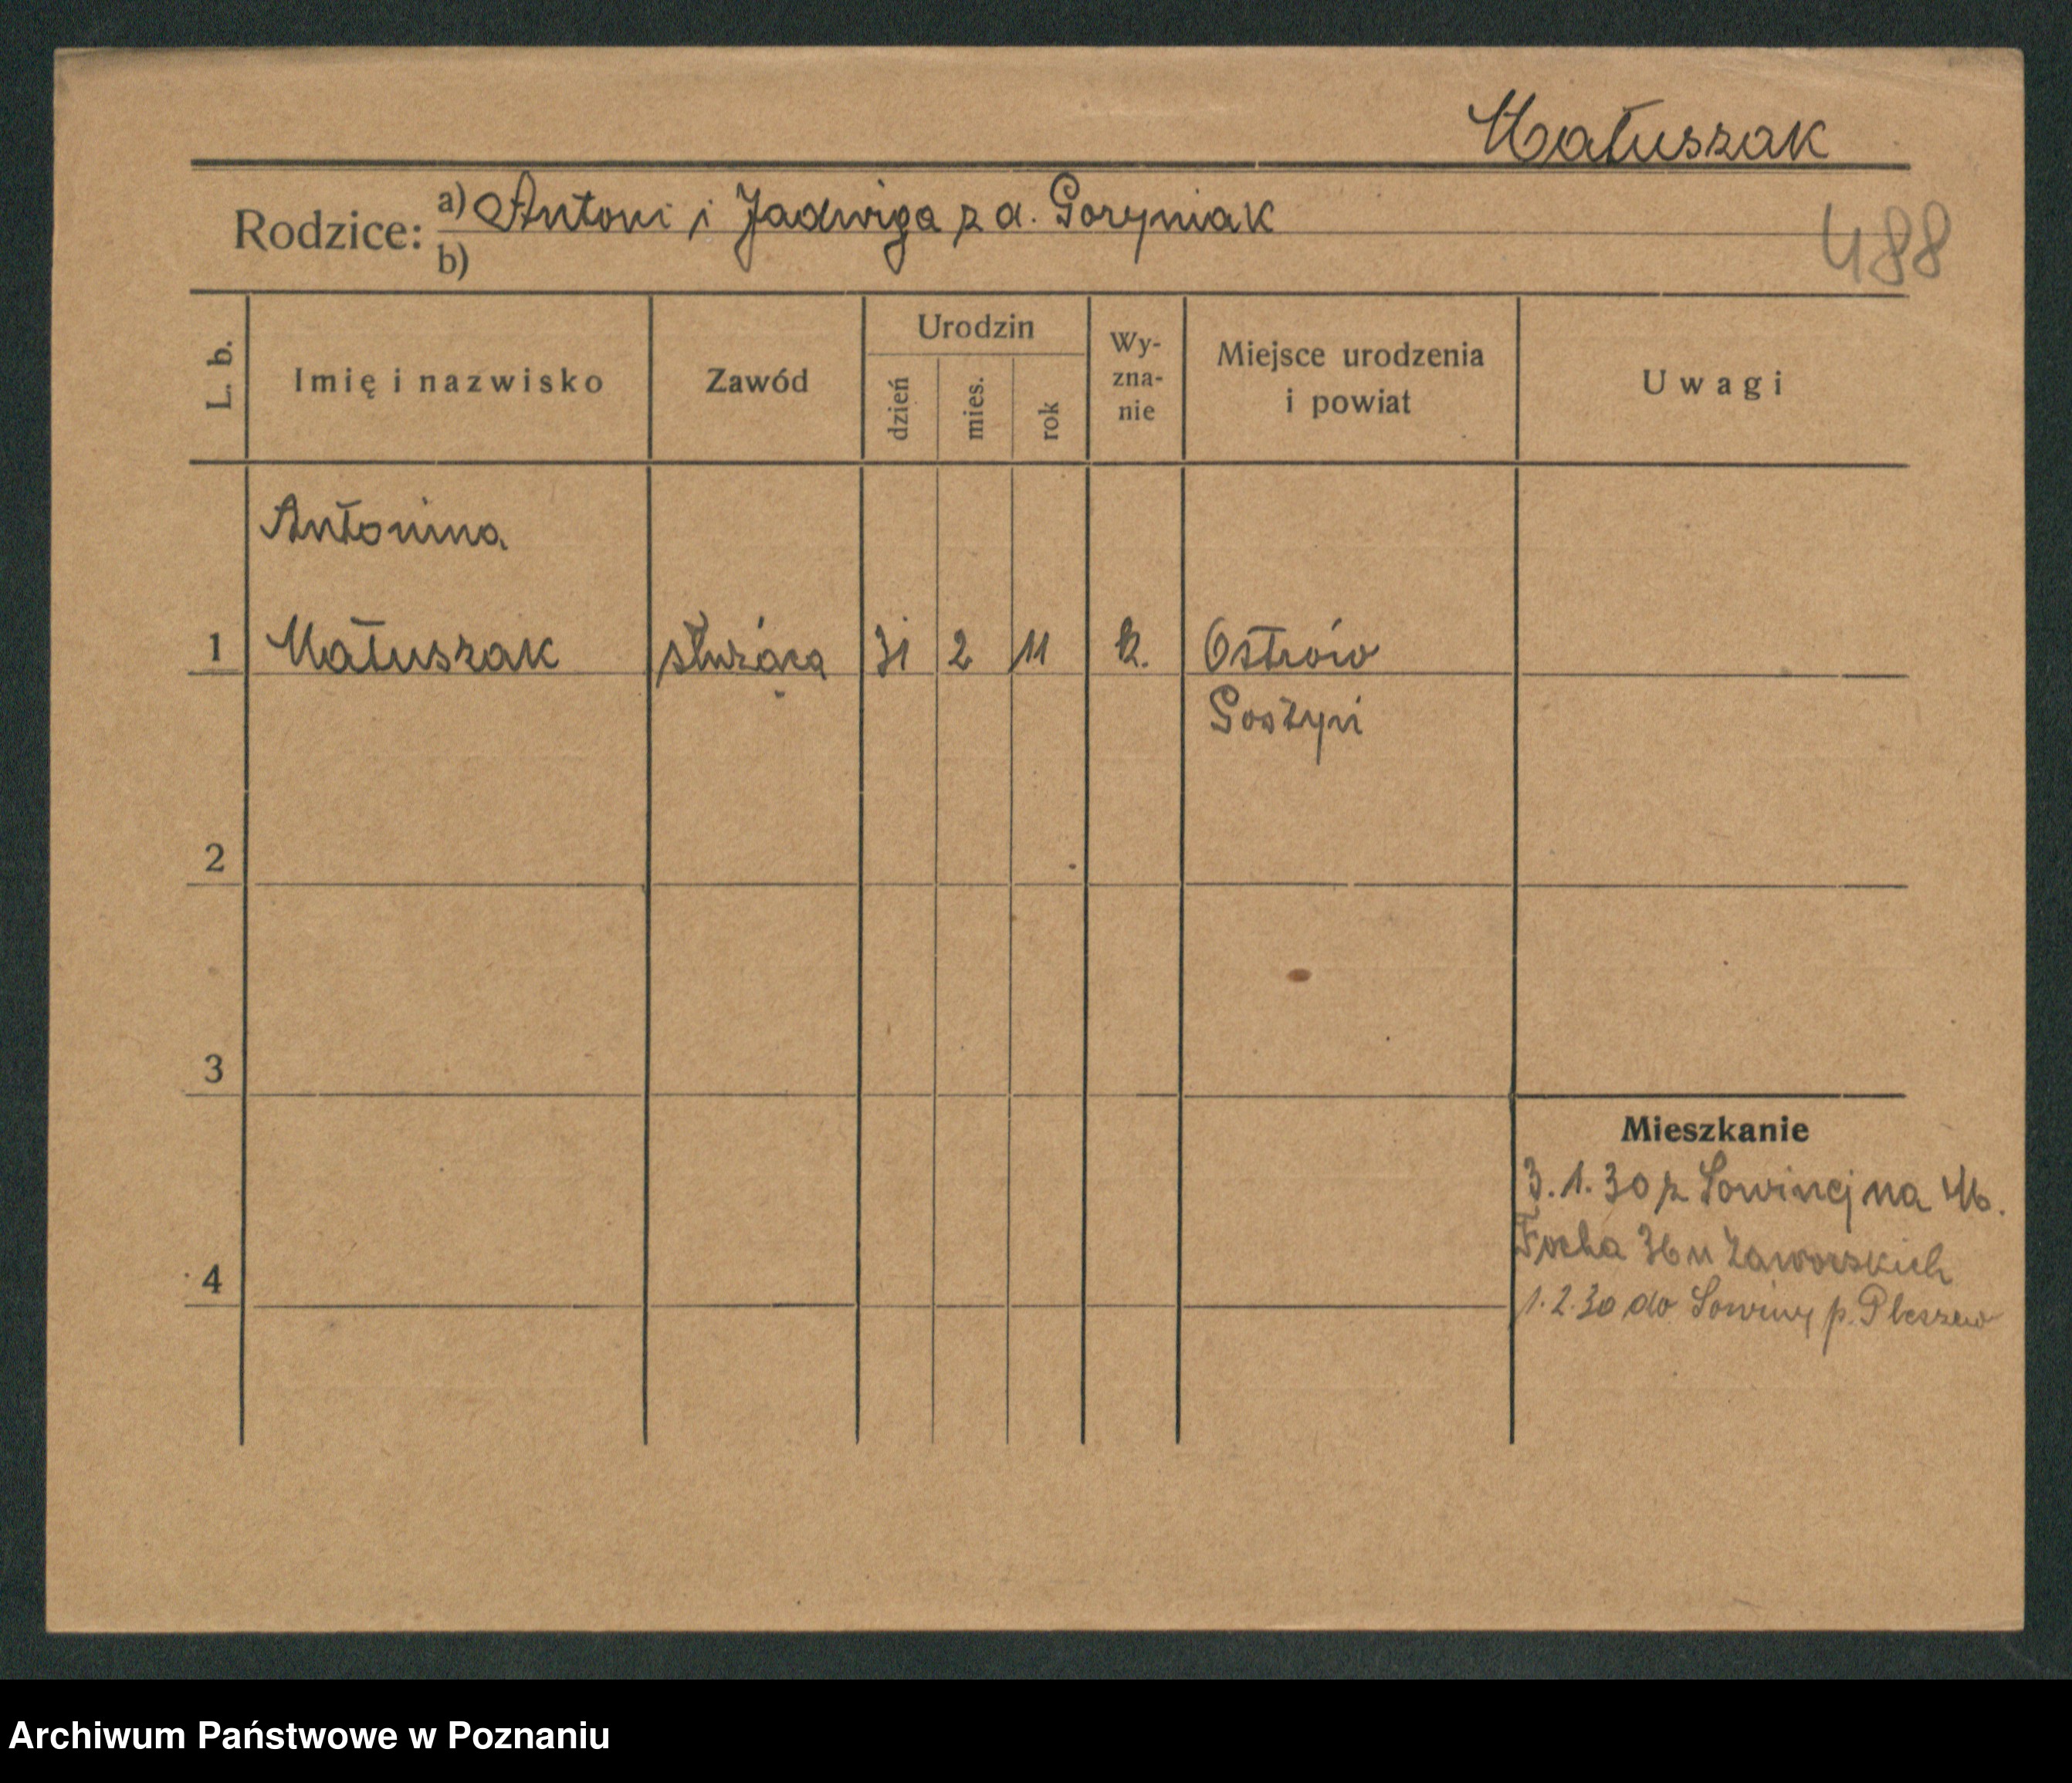 Matuszak
Rodzice: a) Antoni i Jadwiga z d. Goryniak
b)
488
L. b.
Imię i nazwisko
Zawód
Urodzin
dzień
mies.
rok
Wy-
zna-
nie
Miejsce urodzenia
i powiat
Uwagi
Antonina
1 Matuszak służąca 31 2 11 k. Ostrów
Gostyń
2
3
Mieszkanie
3.1.30 z Sowinej na
Focha 36 u Zaworskich
4
1.2.30 do Sowiny p. Pleszew
Archiwum Państwowe w Poznaniu